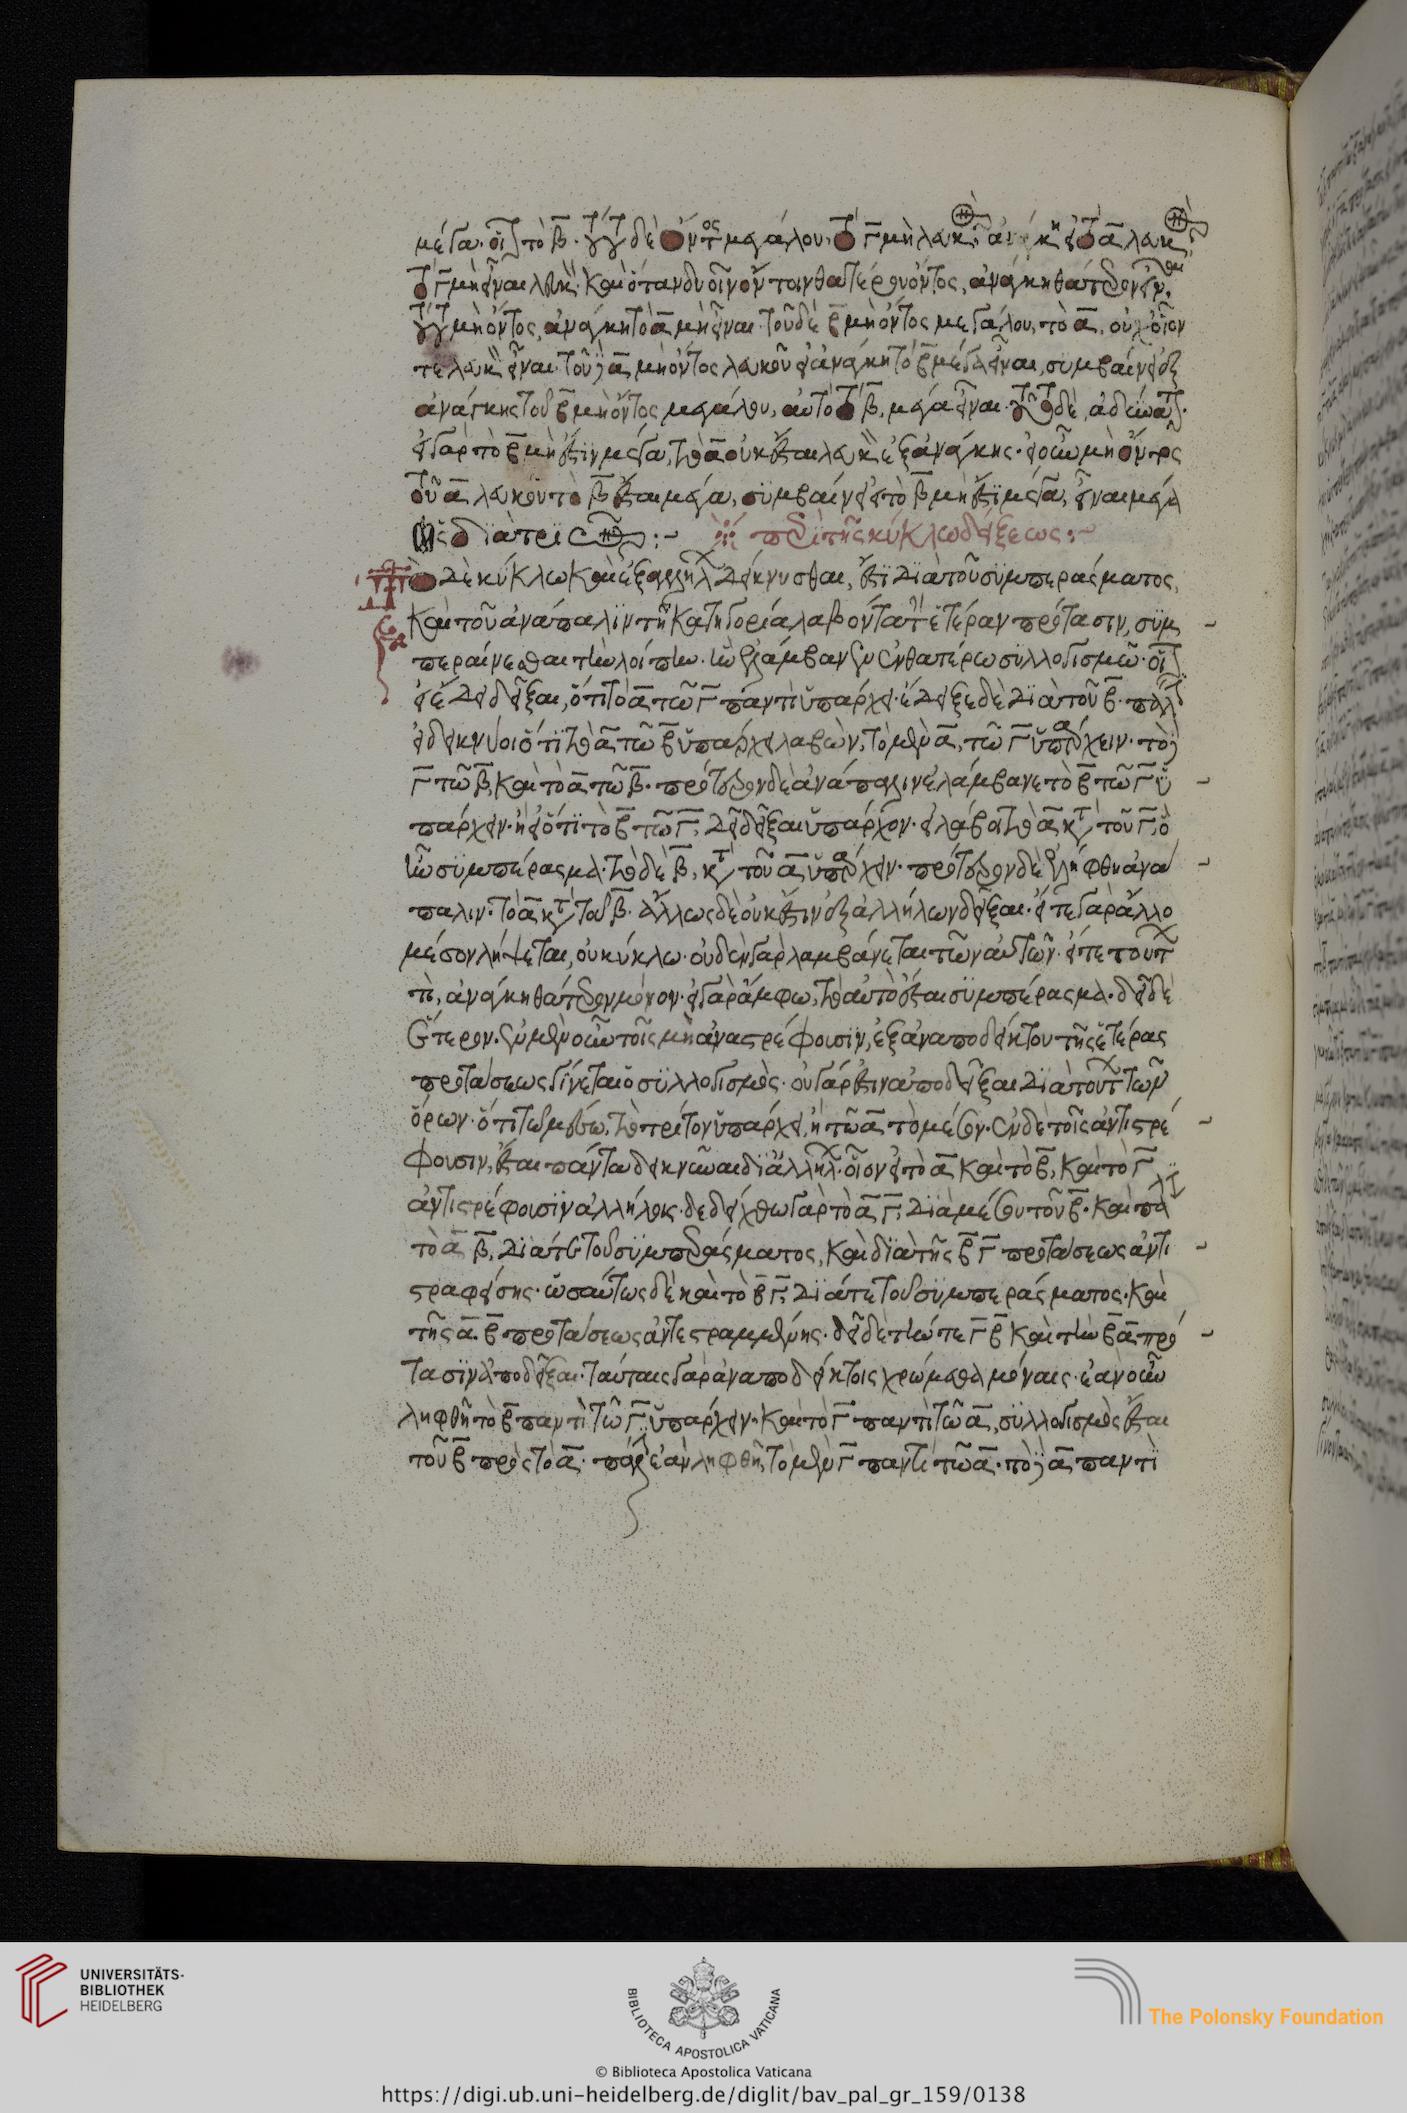 μέγα· οἷον τὸ β̄· τούτου δὲ ὄντος μεγάλου, τὸ γ̄ μὴ λευκόν, ἀνάγκη εἰ τὸ ᾱ λευκόν,
τὸ γ̄ μὴ εἶναι λευκόν. καὶ ὅταν δυοῖν ὄντοιν θατέρου ὄντος, ἀνάγκη θάτερον εἶναι,
τούτου μὴ ὄντος, ἀνάγκη τὸ ᾱ μὴ εἶναι· τοῦ δὲ β̄ μὴ ὄντος μεγάλου, τὸ ᾱ, οὐχ οἷον
τε λευκὸν εἶναι· τοῦ δὲ ᾱ μὴ ὄντος λευκοῦ εἰ ἀνάγκη τὸ β̄ μέγα εἶναι, συμβαίνει ἐξ
ἀνάγκης τοῦ β̄ μὴ ὄντος μεγάλου, αὐτὸ τὸ β̄, μέγα εἶναι· τοῦτο δὲ, ἀδύνατον·
εἰ γὰρ τὸ β̄ μὴ ἔστιν μέγα, τὸ ᾱ οὐκ ἔσται λευκὸν ἐξ ἀνάγκης· εἰ οὖν μὴ ὄντος
τοῦ ᾱ λευκοῦ τὸ β̄ ἔσται μέγα, συμβαίνει εἰ τὸ β̄ μὴ ἔστι μέγα, εἶναι μέγα
ὡς διὰ τριῶν :~ περὶ τῆς κύκλω δείξεως :~
Τὸ δὲ κύκλω καὶ ἐξ ἀλλήλων δείκνυσθαι, ἐστὶ διὰ τοῦ συμπεράσματος,
καὶ τοῦ ἀνάπαλιν τῇ κατηγορία λαβόντα τὴν ἑτέραν πρότασιν, συμ
περαίνεσθαι τὴν λοιπὴν. ἣν ἐλάμβανεν ἐν θατέρω συλλογισμῶ· οἷον
εἰ ἔδει δεῖξαι, ὅτι τὸ ᾱ τῶ γ̄ παντὶ ὑπάρχει· ἔδειξε δὲ διὰ τοῦ β̄· πάλιν
εἰ δεικνύοι ὅτι τὸ ᾱ τῶ β̄ ὑπάρχει λαβὼν, τὸ μὲν ᾱ, τῶ γ̄ ὑπάρχειν· τὸ δὲ
γ̄ τῶ β̄, καὶ τὸ ᾱ τῶ β̄. πρότερον δὲ ἀνάπαλιν ἐλάμβανε τὸ β̄ τῶ γ̄ ὑ
πάρχειν· ἢ εἰ ὅτι τὸ β̄ τῶ γ̄, δεῖ δεῖξαι ὑπάρχον· εἰ λάβοι τὸ ᾱ κατὰ τοῦ γ̄, ὃ
ἦν συμπέρασμα. τὸ δὲ β̄, κατὰ τοῦ ᾱ ὑπάρχειν. πρότερον δὲ ἐλήφθη ἀνά
παλιν. τὸ ᾱ κατὰ τοῦ β̄. ἄλλως δὲ οὐκ ἔστιν ἐξ ἀλλήλων δεῖξαι· εἴτε γὰρ ἄλλο
μέσον λήψεται, οὐ κύκλω· οὐδὲν γὰρ λαμβάνεται τῶν αὐτῶν· εἴτε τούτων
τὶ, ἀνάγκη θάτερον μόνον· εἰ γὰρ ἄμφω, τὸ αὐτὸ ἔσται συμπέρασμα. δεῖ δὲ
ἕτερον. ἐν μὲν οὖν τοῖς μὴ ἀναστρέφουσιν, ἐξ ἀναποδείκτου τῆς ἑτέρας
προτάσεως γίνεται ὁ συλλογισμός· οὐ γάρ ἐστιν ἀποδεῖξαι διὰ τούτων τῶν
ὅρων· ὅτι τῶ μέσω, τὸ τρίτον ὑπάρχει, ἢ τῶ ᾱ τὸ μέσον. ἐν δὲ τοῖς ἀντιστρέ
φουσιν, ἔσται πάντα δεικνύναι δι ἀλλήλων· οἷον εἰ τὸ ᾱ καὶ τὸ β̄, καὶ τὸ γ̄
ἀντιστρέφουσιν ἀλλήλοις· δεδείχθω γὰρ τὸ ᾱ γ̄, διὰ μέσου τοῦ β̄. καὶ πάλιν
τὸ ᾱ β̄, διά τε τοῦ συμπεράσματος, καὶ διὰ τῆς β̄ γ̄ προτάσεως ἀντι
στραφείσης· ὡσαύτως δὲ καὶ τὸ β̄ γ̄, διά τε τοῦ συμπεράσματος. καὶ
τῆς ᾱ β̄ προτάσεως ἀντεστραμμένης. δεῖ δὲ τήν τε γ̄ β̄ καὶ τὴν β̄ ᾱ πρό
τασιν ἀποδεῖξαι· ταύταις γὰρ ἀναποδείκτοις χρώμεθα μόναις· ἐὰν οὖν
ληφθῆ τὸ β̄ παντὶ τῶ γ̄ ὑπάρχειν. καὶ τὸ γ̄ παντὶ τῶ ᾱ, συλλογισμὸς ἔσται
τοῦ β̄ πρὸς τὸ ᾱ. πάλιν ἐὰν ληφθῆ, τὸ μὲν γ̄ παντὶ τῶ ᾱ. τὸ δὲ ᾱ παντὶ
UNIVERSITÄTS-
BIBLIOTHEK
HEIDELBERG
BIBLIOTECA APOSTOLICA VATICANA
The Polonsky Foundation
© Biblioteca Apostolica Vaticana
https://digi.ub.uni-heidelberg.de/diglit/bav_pal_gr_159/0138